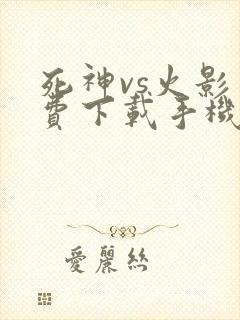 死神vs火影
費下載手機
愛麗絲